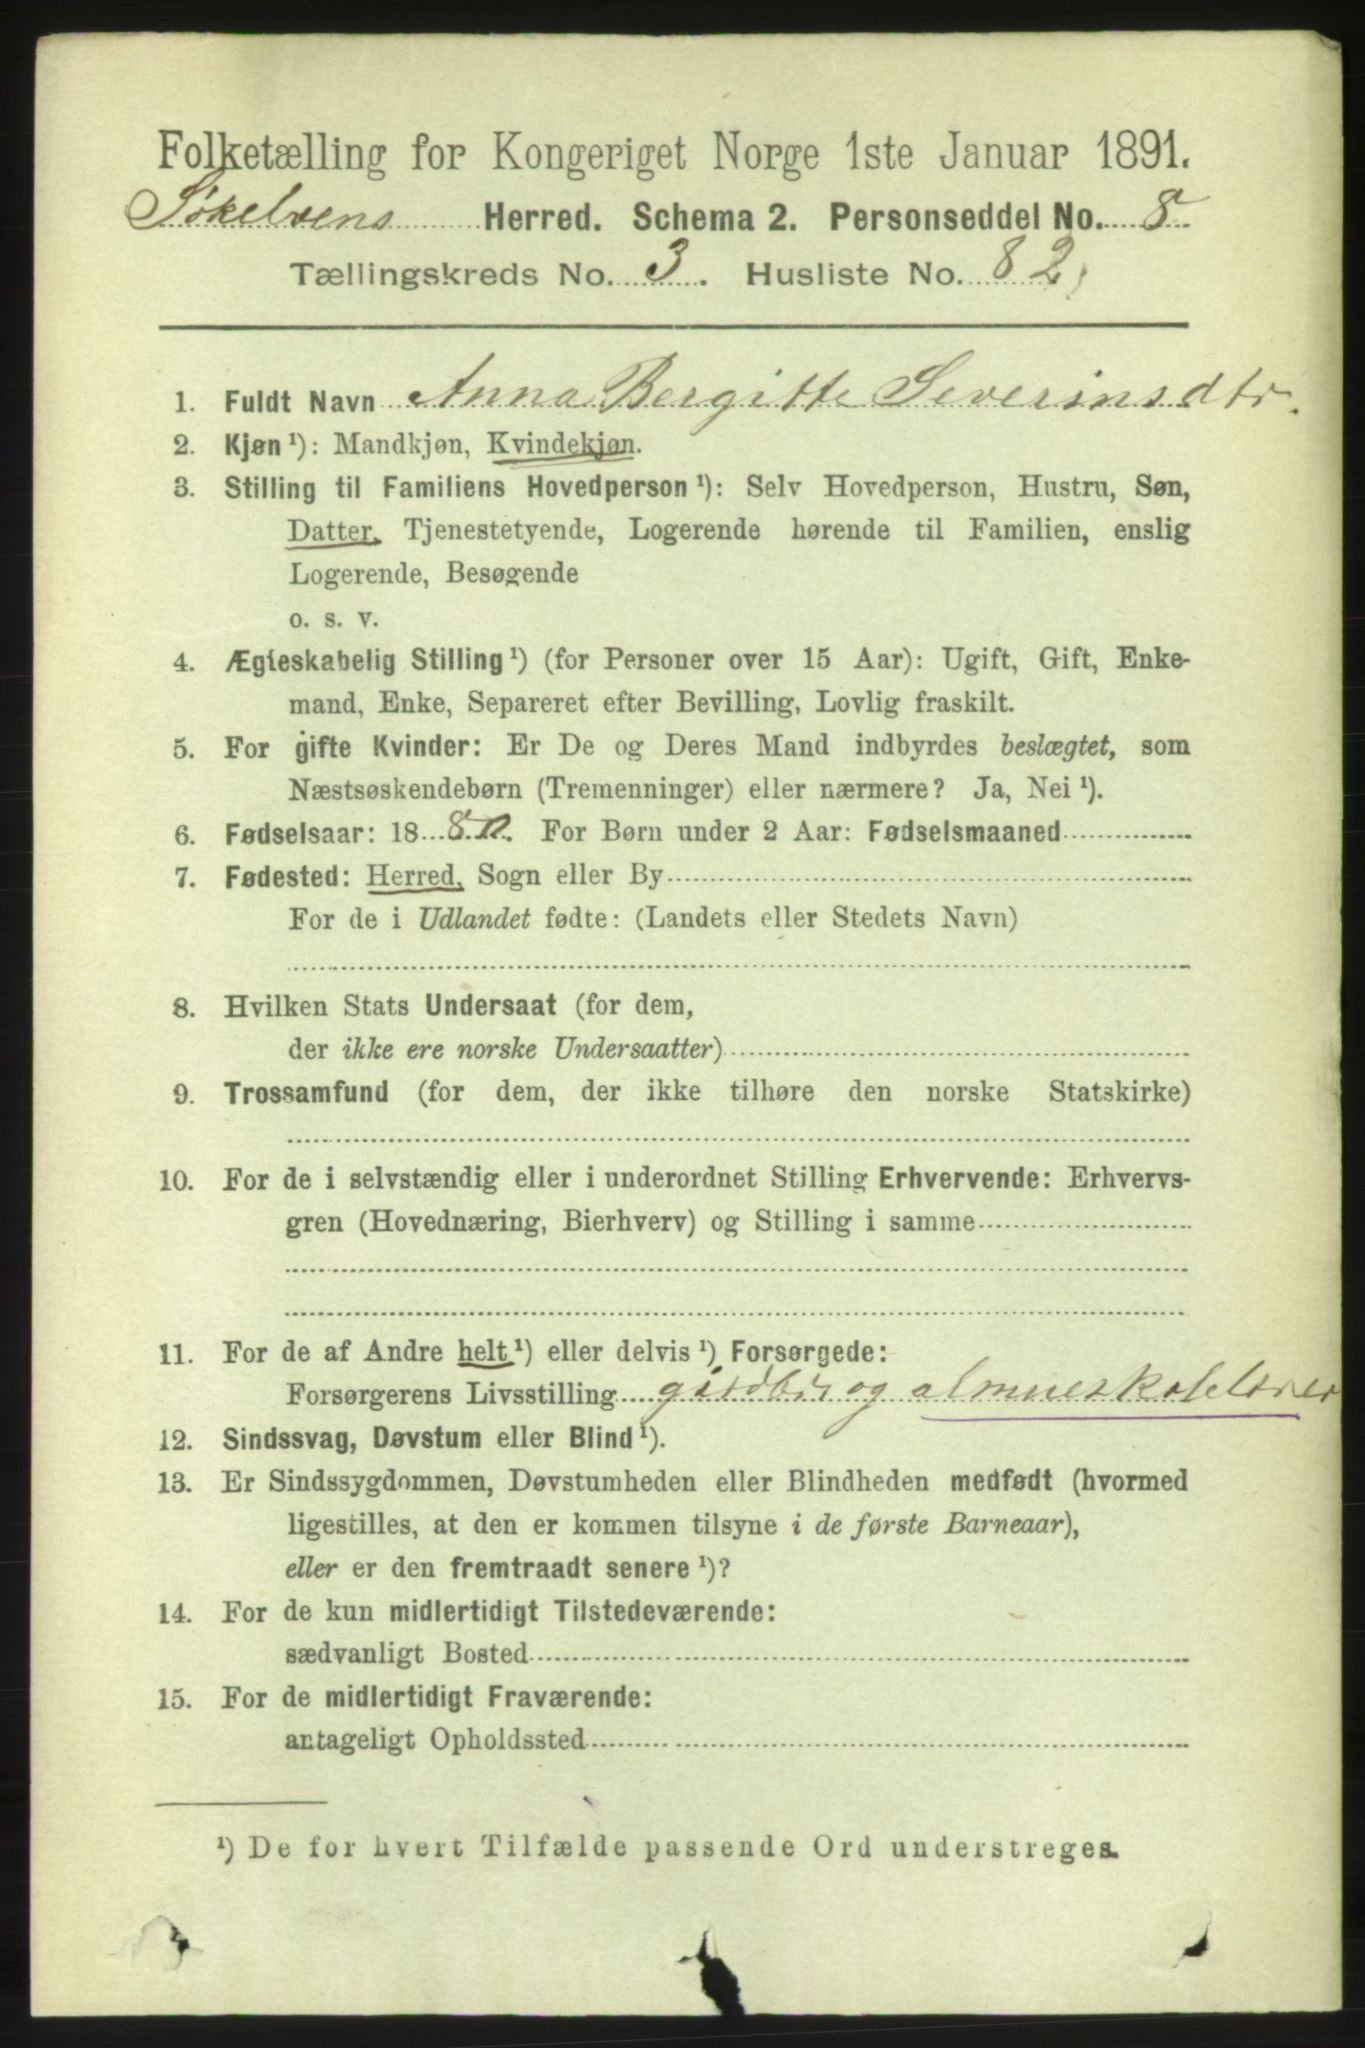 Folketælling for Kongeriget Norge 1ste Januar 1891.
Søkelvens Herred. Schema 2. Personseddel No. 8
Tællingskreds No. 3. Husliste No. 82,
1. Fuldt Navn Anna Bergitte Severinsdtr.
2. Kjøn ¹): Mandkjøn, Kvindekjøn.
3. Stilling til Familiens Hovedperson ¹): Selv Hovedperson, Hustru, Søn,
Datter, Tjenestetyende, Logerende hørende til Familien, enslig
Logerende, Besøgende
o. s. v.
4. Ægteskabelig Stilling ¹) (for Personer over 15 Aar): Ugift, Gift, Enke-
mand, Enke, Separeret efter Bevilling, Lovlig fraskilt.
5. For gifte Kvinder: Er De og Deres Mand indbyrdes beslægtet, som
Næstsøskendebørn (Tremenninger) eller nærmere? Ja, Nei ¹).
6. Fødselsaar: 18 For Børn under 2 Aar: Fødselsmaaned
7. Fødested: Herred, Sogn eller By
For de i Udlandet fødte: (Landets eller Stedets Navn)
8. Hvilken Stats Undersaat (for dem,
der ikke ere norske Undersaatter)
9. Trossamfund (for dem, der ikke tilhøre den norske Statskirke)
10. For de i selvstændig eller i underordnet Stilling Erhvervende: Erhvervs-
gren (Hovednæring, Bierhverv) og Stilling i samme
11. For de af Andre helt ¹) eller delvis ¹) Forsørgede:
Forsørgerens Livsstilling og
12. Sindssvag, Døvstum eller Blind ¹).
13. Er Sindssygdommen, Døvstumheden eller Blindheden medfødt (hvormed
ligestilles, at den er kommen tilsyne i de første Barneaar),
eller er den fremtraadt senere ¹)?
14. For de kun midlertidigt Tilstedeværende:
sædvanligt Bosted
15. For de midlertidigt Fraværende:
antageligt Opholdssted
¹) De for hvert Tilfælde passende Ord understreges.